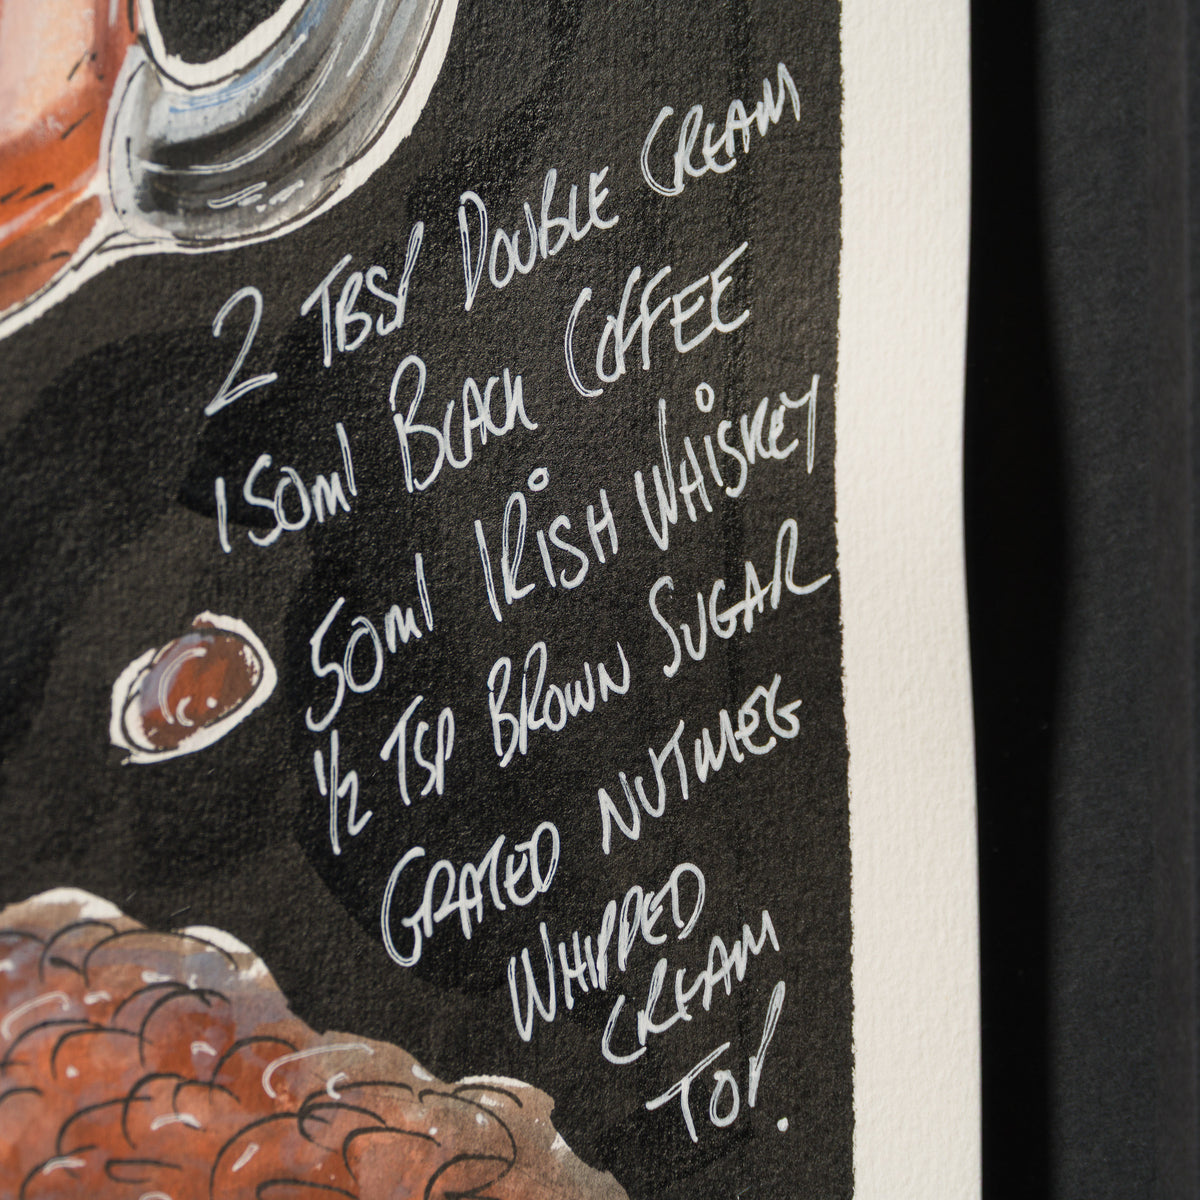 2 TBSP DOUBLE CREAM
150ml BLACK COFFEE
50ml IRiSH WHiSKEY
1/2 TSP BROWN SUGAR
GRATED NUTMEG
WHIPPED
CREAM
TOP.